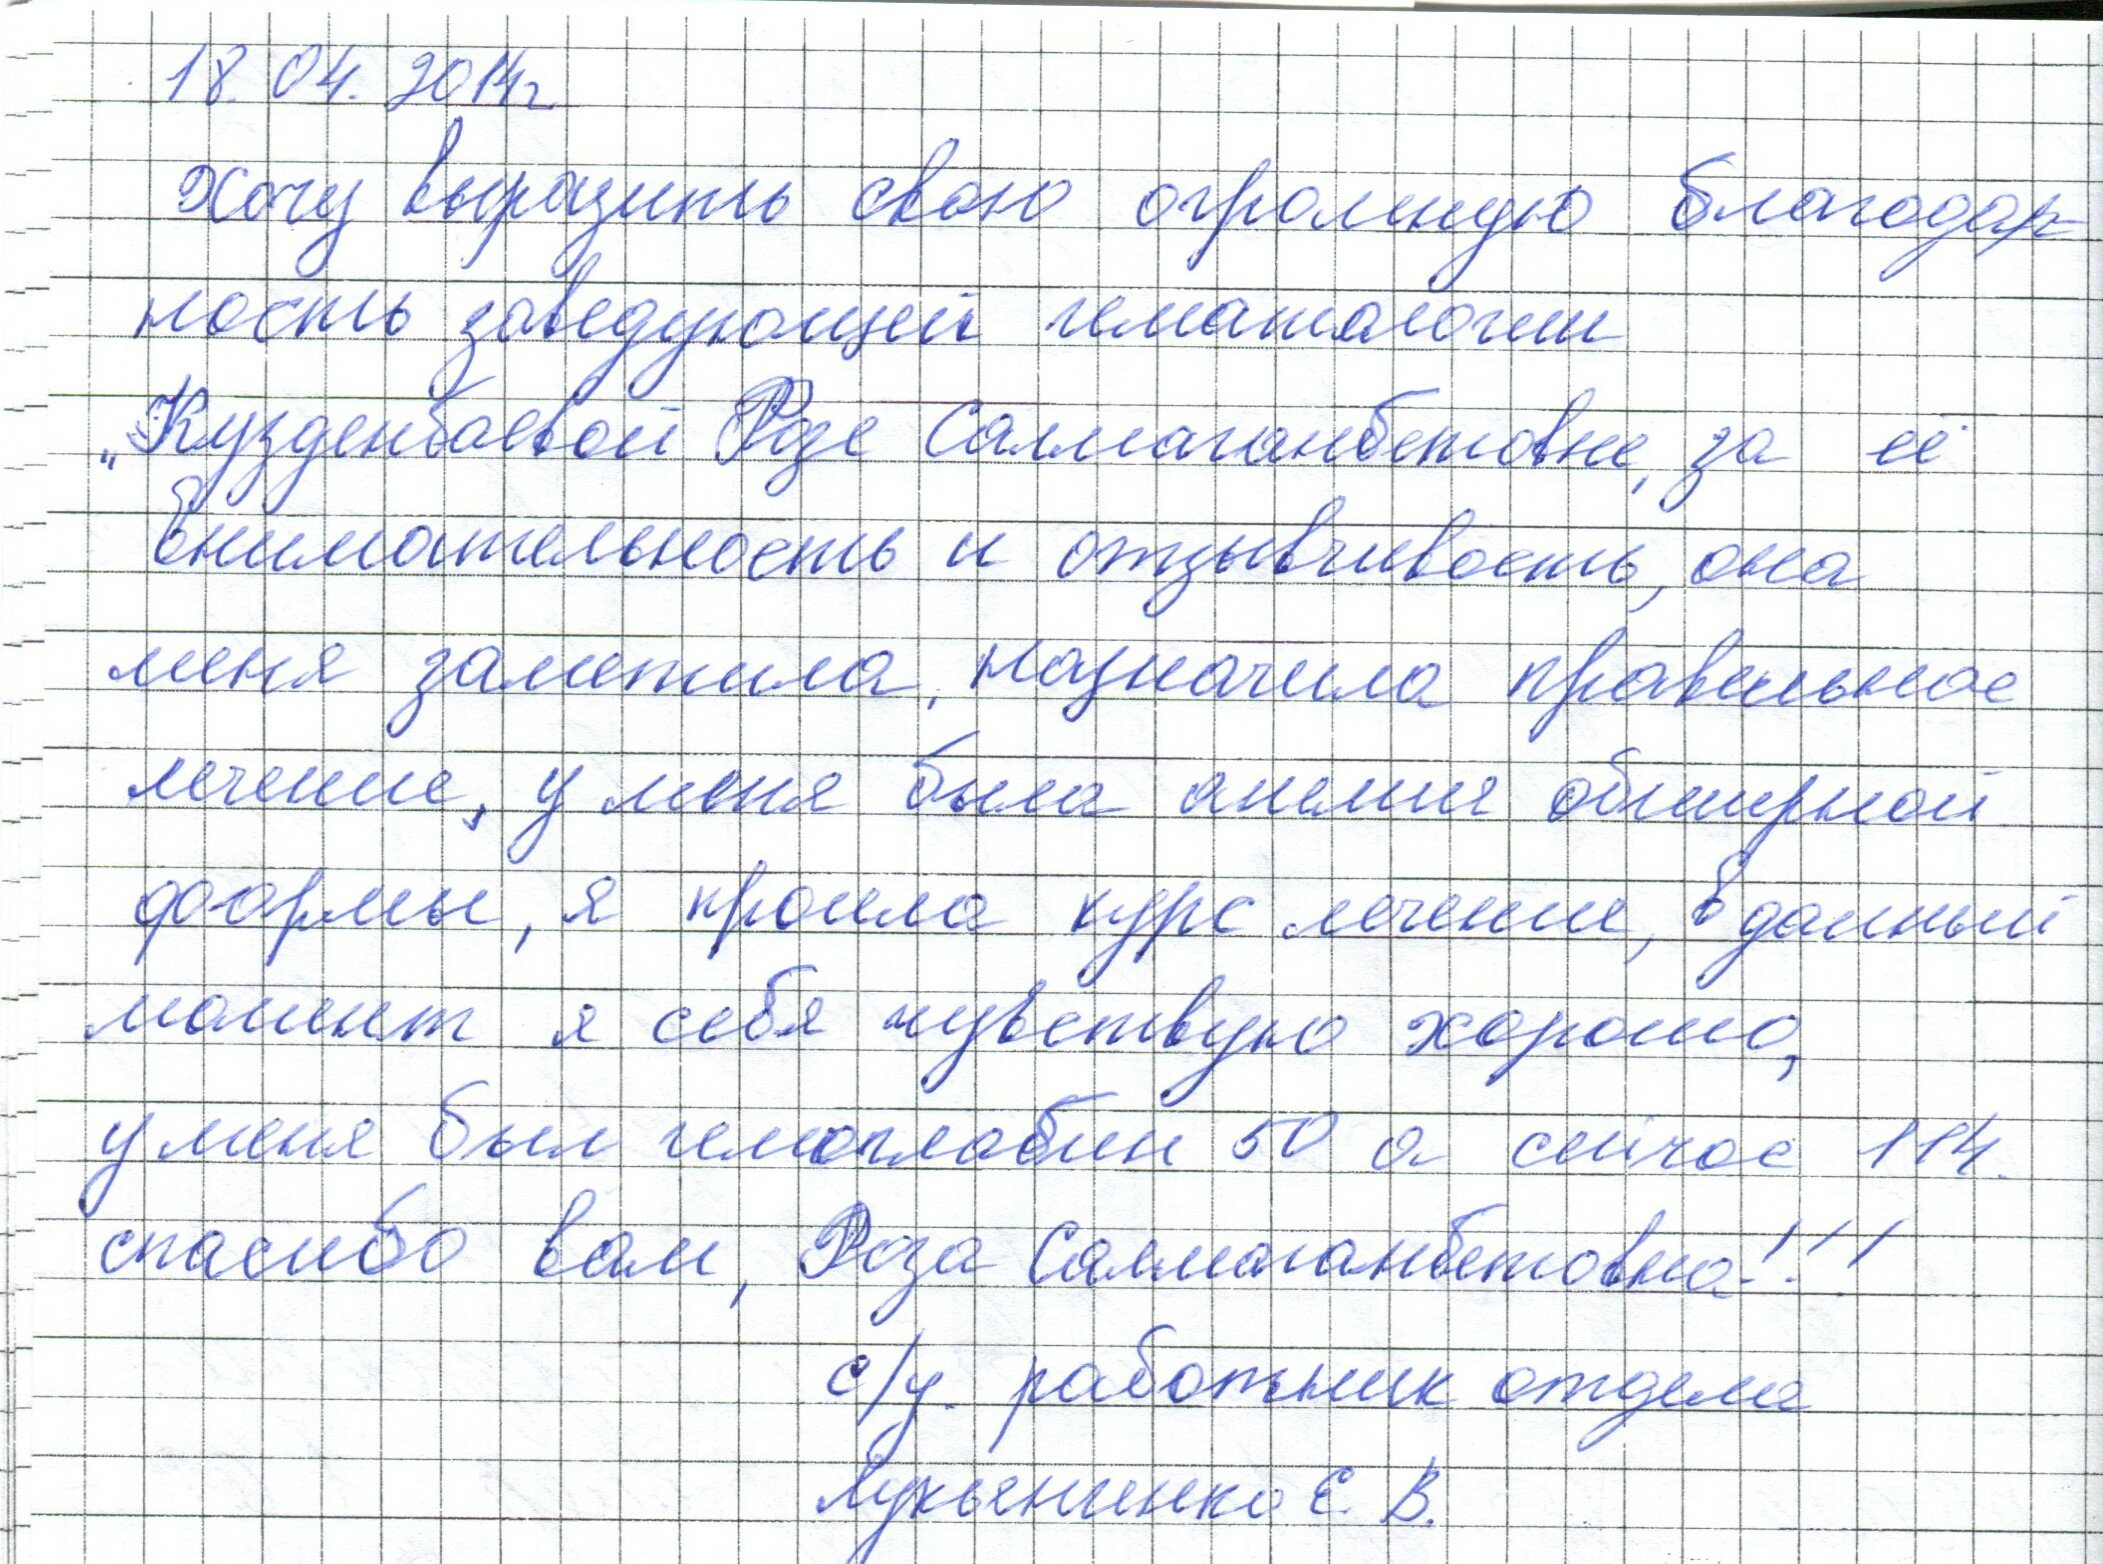 18.04.2014г
Хочу выразить свою огромную благодар-
ность заведующей гематологии
„Кузденбаевой Розе Салмаганбетовне, за её
внимательность и отзывчивость, она
меня заметила, назначила правильное
лечение, у меня была анемия обширной
формы, я прошла курс лечение, в данный
момент я себя чувствую хорошо,
у меня был гемоглабин 50 а сейчас 114.
спасибо вам, Роза Салмаганбетовна!!!
с/у. работник отдела
Е. В.